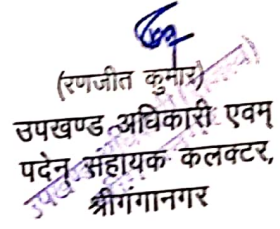 (रणजीत कुमार)
उपखण्ड अधिकारी एवम्
पदेन सहायक कलक्टर,
श्रीगंगानगर